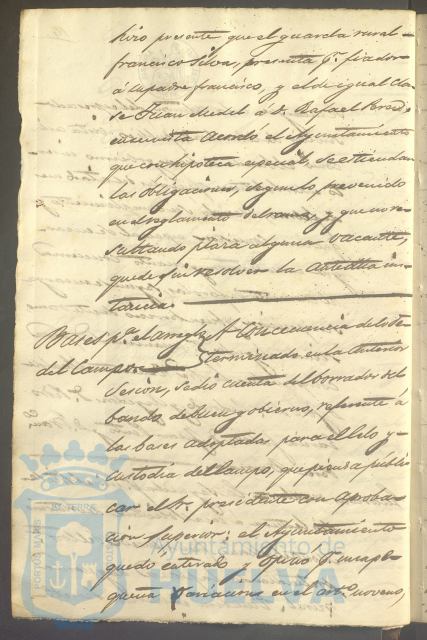 hizo presente que el guarda rural
francisco Silva, presenta pr. fiador
á su padre francisco, y el de igual cla-
se Juan Medel á D. Rafael
en su vista Acordó el Ayuntamiento
que con hipoteca especial, se estiendan
las obligaciones, segun lo prevenido
en el reglamento del ramo, y que no re-
sultando plaza alguna vacante,
quede sin resolver la antedha ins-
tancia.
Bases pa. el arreglo
del Campo
A Consecuencia de lo de-
terminado en la anterior
Sesion, se dio cuenta del borrador del
bando de buen gobierno, referente á
las bases adoptadas para el celo y
custodia del Campo, que piensa públi-
car el Sr. presidente con aproba-
cion Superior: el Ayuntamiento
quedó enterado y opinó pr. una pe-
queña variacion en el arto. noveno,
PORTUS MARIS
ET TERRAE
CUSTODIA
Ayuntamiento de
HUELVA